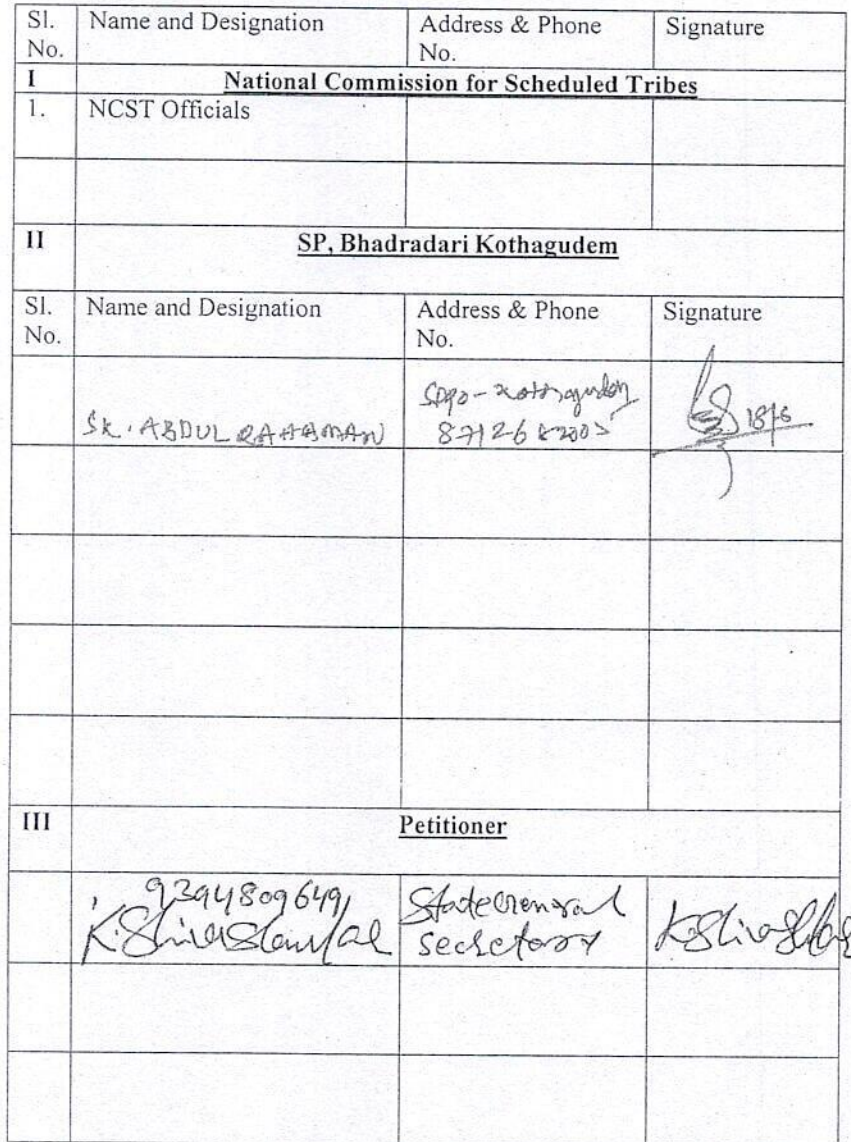 Sl. No. Name and Designation Address & Phone No. Signature
I National Commission for Scheduled Tribes
1. NCST Officials
II SP, Bhadradari Kothagudem
Sl. No. Name and Designation Address & Phone No. Signature
SK. ABDUL RAHAMAN
18/6
III Petitioner
9394809649
State General
secretary